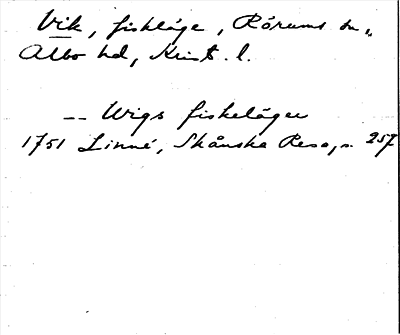 Vik, fiskläge, Rörums sn,
Albo hd, Krist. l.
-- Wigs fiskeläger
1751 Linné, Skånska Resa, s. 257